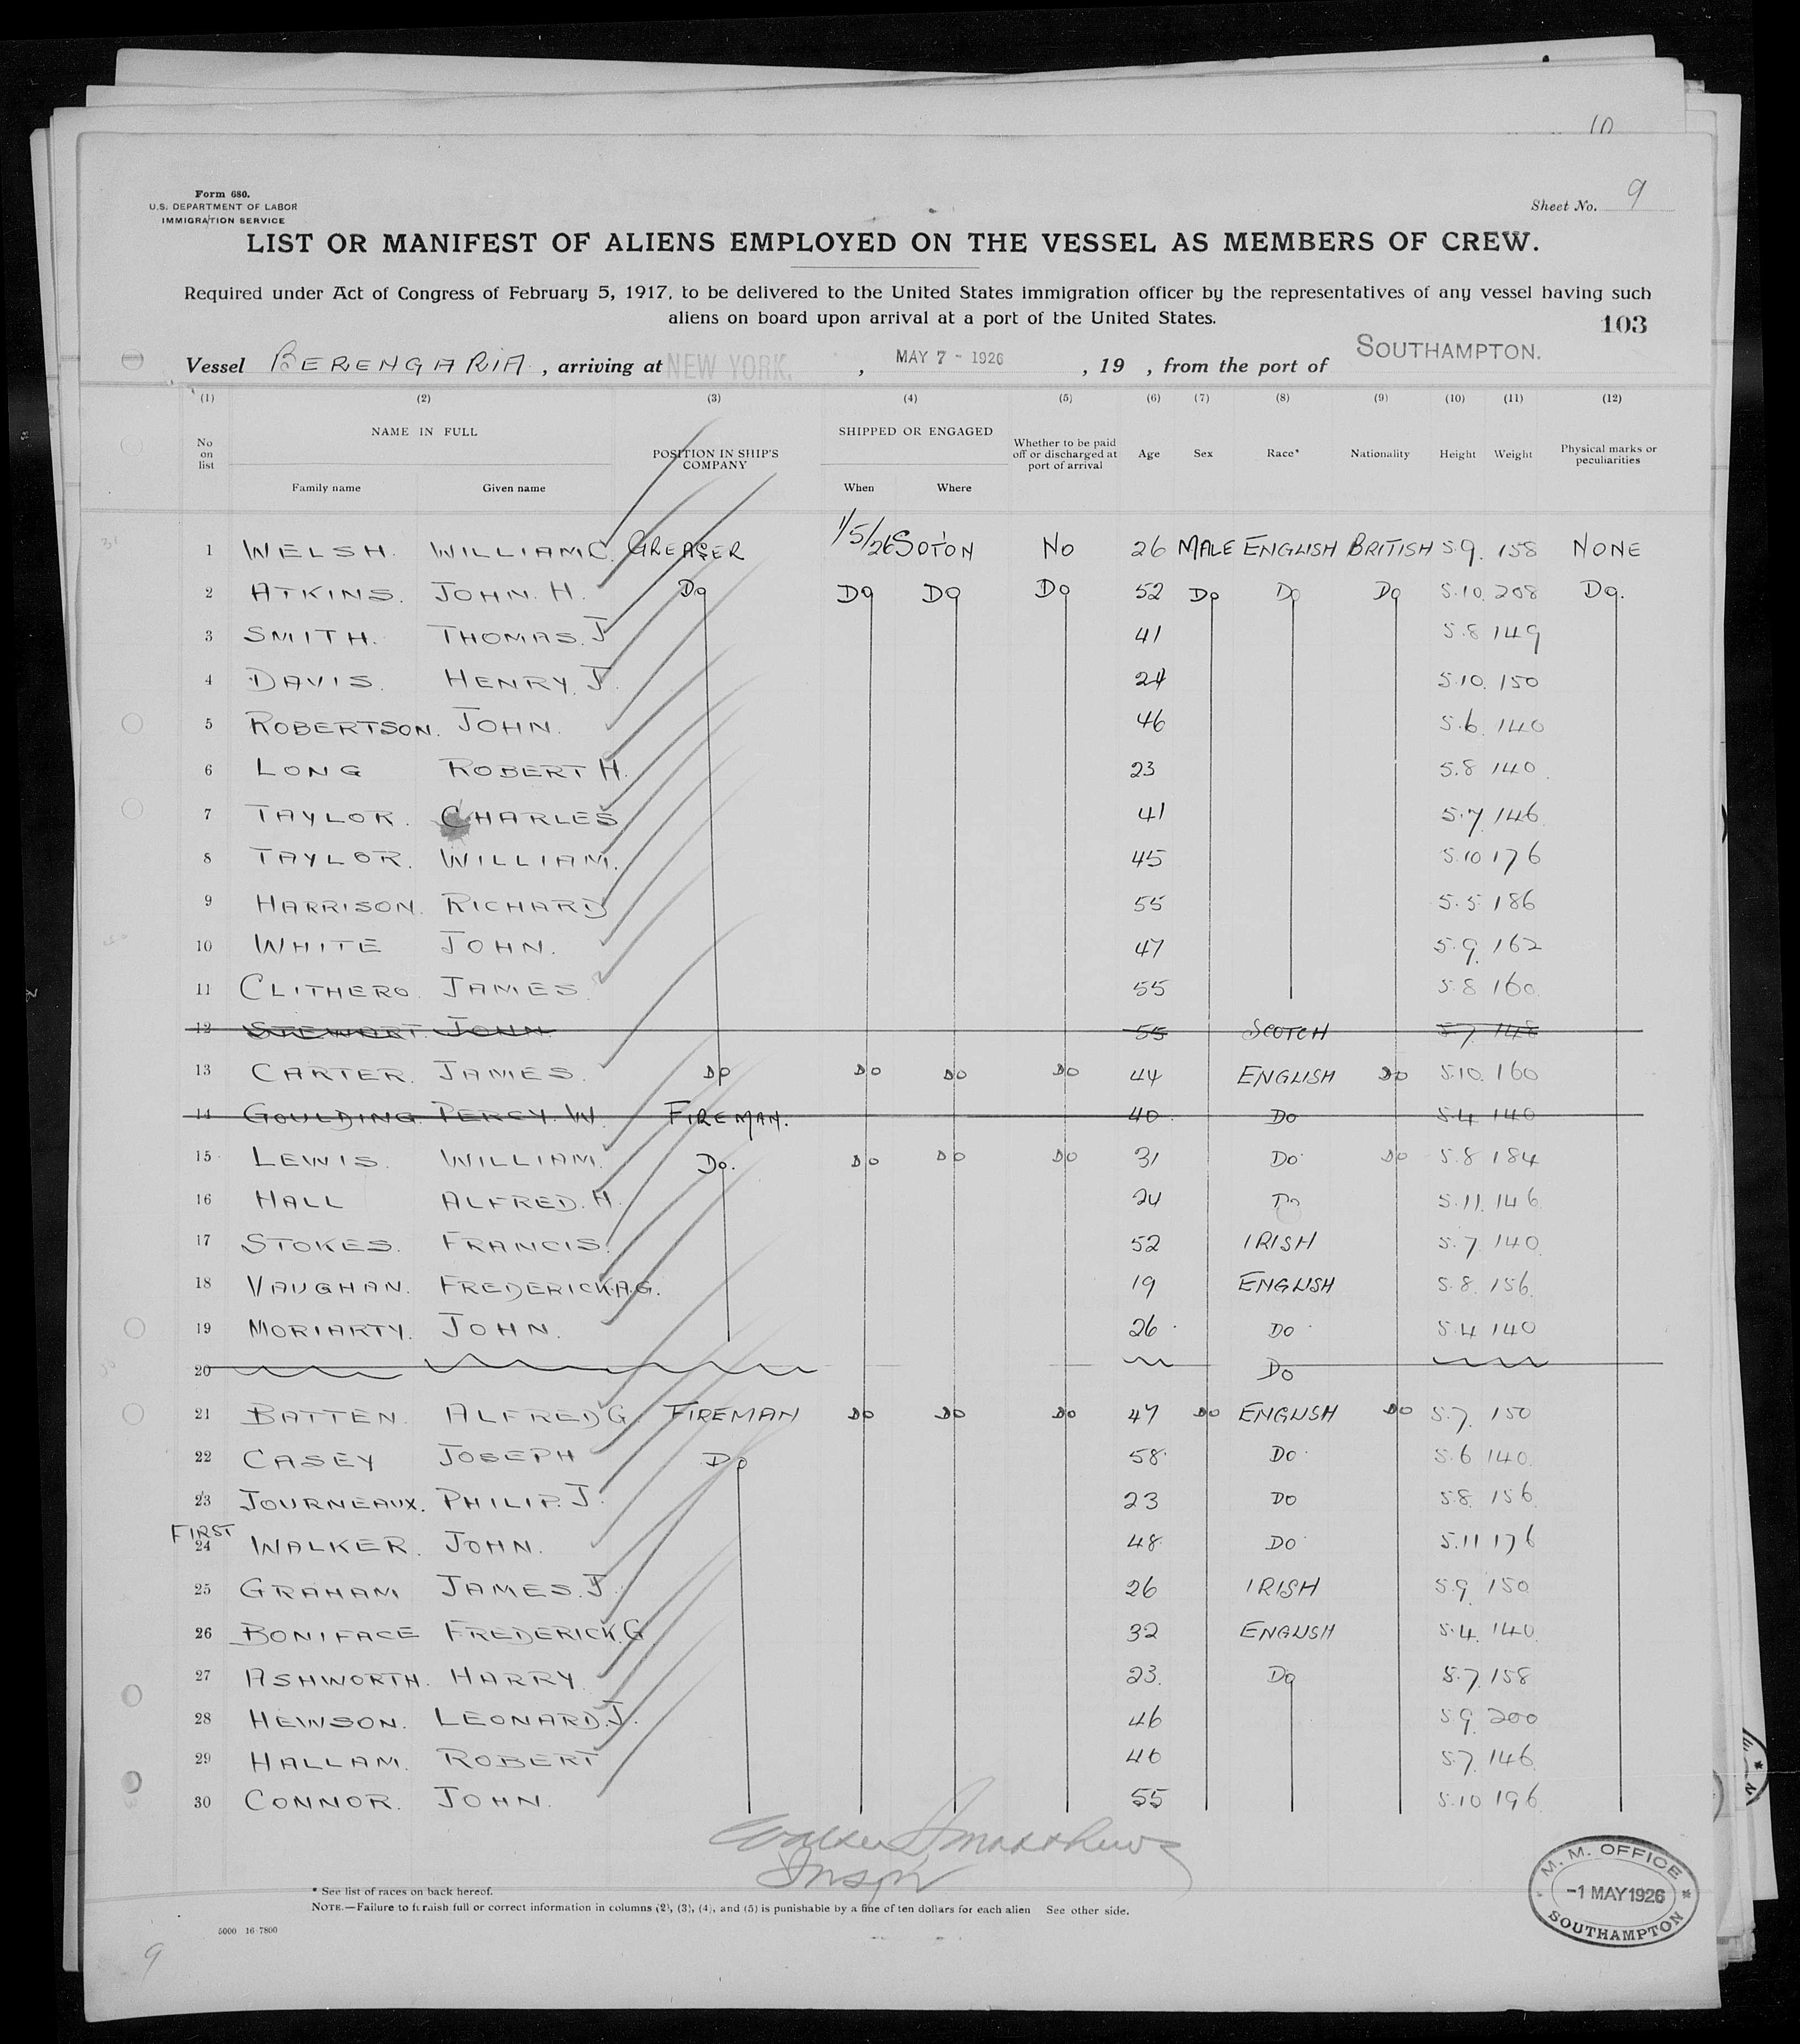 10
Form 680.
U.S. DEPARTMENT OF LABOR
IMMIGRATION SERVICE
Sheet No. 9
LIST OR MANIFEST OF ALIENS EMPLOYED ON THE VESSEL AS MEMBERS OF CREW.
Required under Act of Congress of February 5, 1917, to be delivered to the United States immigration officer by the representatives of any vessel having such
aliens on board upon arrival at a port of the United States.
103
Vessel BERENGARIA, arriving at NEW YORK, MAY 7 - 1926, 19 , from the port of SOUTHAMPTON.
(1) (2) (3) (4) (5) (6) (7) (8) (9) (10) (11) (12)
No on list NAME IN FULL POSITION IN SHIP'S COMPANY SHIPPED OR ENGAGED Whether to be paid off or discharged at port of arrival Age Sex Race* Nationality Height Weight Physical marks or peculiarities
Family name Given name When Where
1 WELSH. WILLIAM C. GREASER 1/5/26 SOTON NO 26 MALE ENGLISH BRITISH 5.9. 158 NONE
2 ATKINS. JOHN. H. DO DO DO DO 52 DO DO DO 5.10. 208 DO.
3 SMITH. THOMAS. J 41 5.8 149
4 DAVIS. HENRY. J. 24 5.10. 150
5 ROBERTSON. JOHN. 46 5.6. 140
6 LONG ROBERT H. 23 5.8 140.
7 TAYLOR. CHARLES 41 5.7 146.
8 TAYLOR. WILLIAM. 45 5.10 176
9 HARRISON. RICHARD 55 5.5 186
10 WHITE JOHN. 47 5.9. 162
11 CLITHERO. JAMES. 55 5.8 160.
12 STEWART. JOHN. 55 SCOTCH 5.7. 148
13 CARTER. JAMES. DO DO DO DO 44 ENGLISH DO 5.10. 160
14 GOULDING. PERCY. W. FIREMAN. 40. DO 5.4 140
15 LEWIS. WILLIAM. DO. DO DO DO 31 DO DO 5.8 184
16 HALL ALFRED. H. 24 DO 5.11. 146
17 STOKES. FRANCIS. 52 IRISH 5.7. 140.
18 VAUGHAN. FREDERICK.A.G. 19 ENGLISH 5.8. 156.
19 MORIARTY. JOHN. 26 DO 5.4 140
20 DO
21 BATTEN. ALFRED G. FIREMAN DO DO DO 47 DO ENGLISH DO 5.7. 150
22 CASEY JOSEPH DO 58 DO 5.6 140.
23 JOURNEAUX. PHILIP. J. 23 DO 5.8. 156.
FIRST
24 WALKER. JOHN. 48 DO 5.11 176
25 GRAHAM JAMES. J. 26 IRISH 5.9. 150
26 BONIFACE FREDERICK. G 32 ENGLISH 5.4. 140.
27 ASHWORTH. HARRY. 23. DO 5.7. 158
28 HEWSON. LEONARD. J. 46 5.9. 200
29 HALLAM. ROBERT 40 5.7. 146.
30 CONNOR. JOHN. 55 5.10 196.
Inspr
* See list of races on back hereof.
NOTE.—Failure to furnish full or correct information in columns (2), (3), (4), and (5) is punishable by a fine of ten dollars for each alien See other side.
5000 16-7800
M. M. OFFICE
-1 MAY 1926
SOUTHAMPTON
9